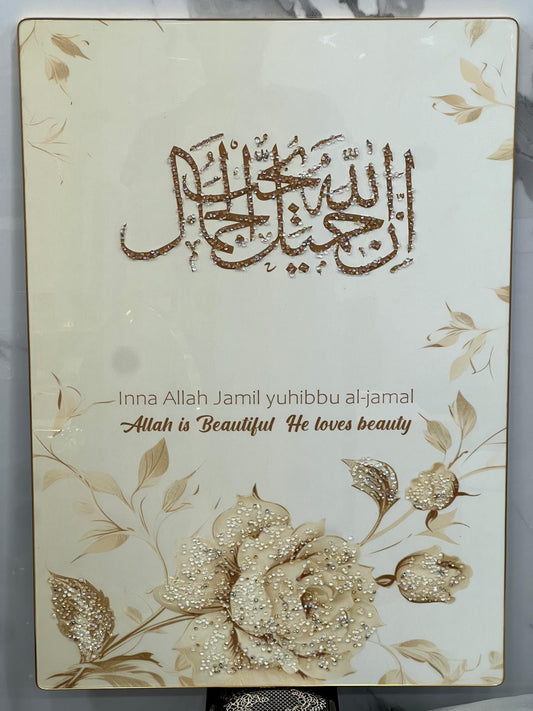 إن الله جميل يحب الجمال
Inna Allah Jamil yuhibbu al-jamal
Allah is Beautiful He loves beauty